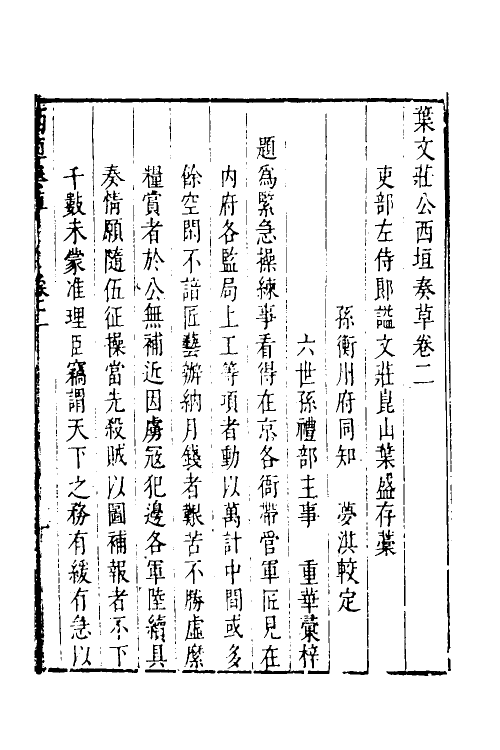 葉文莊公西垣奏草卷二
吏部左侍郎謚文莊崑山葉盛存藁
孫衡州府同知　夢淇較定
六世孫禮部主事　重華彙梓
題為緊急操練事看得在京各衙帶管軍匠見在
內府各監局上工等項者動以萬計中間或多
餘空閑不諳匠藝辦納月錢者艱苦不勝虛縻
糧賞者於公無補近因虜寇犯邊各軍陸續具
奏情願隨伍征操當先殺賊以圖補報者不下
千數未蒙准理臣竊謂天下之務有緩有急以